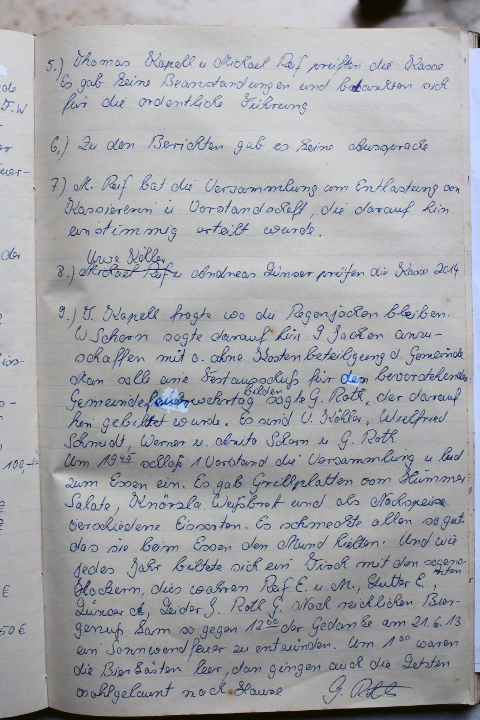 5.) Thomas Kapell u Michael Reif prüften die Kasse
Es gab keine Beanstandungen und bedankten sich
für die ordentliche Führung
6.) Zu den Berichten gab es keine Aussprache
7.) M. Reif bat die Versammlung um Entlastung von
Kassiererin u Vorstandschaft, die darauf hin
einstimmig erteilt wurde.
Uwe Köller
8.) Michael Reif u Andreas Zünser prüfen die Kasse 2014
9.) T. Kapell fragte wo die Regenjacken bleiben.
W Schorn sagte darauf hin 9 Jacken anzu-
schaffen mit o. ohne Kostenbeteiligung d. Gemeinde
Man solle eine Festausschuß für den bevorstehende
bilden
Gemeindefeuerwehrtag sagte G. Roth, der darauf
hin gebildet wurde. Es sind U. Köller, Wielfried
Schmidt, Werner u. Anita Schorn u G. Roth
Um 19 schloß 1 Vorstand die Versammlung u lud
zum Essen ein. Es gab Grillplatten vom
Salate, Weißbrot und als Nachspeise
verschiedene Eissorten. Es schmeckte allen so gut
das sie beim Essen den Mund hielten. Und wie
jedes Jahr bildete sich ein Tisch mit den sogena-
nnten
Hockern, dies wahren Reif E. u M., E.
Zünser A, G. Roth G. Nach reichlichen Bier-
genuß kam so gegen 12 00 der Gedanke am 21.6.13
ein Sonnwendfeuer zu entzünden. Um 1 00 waren
die Bierkästen leer, dan gingen auch die Letzten
wohlgelaunt nach Hause G. Roth
100,-
€
50 €